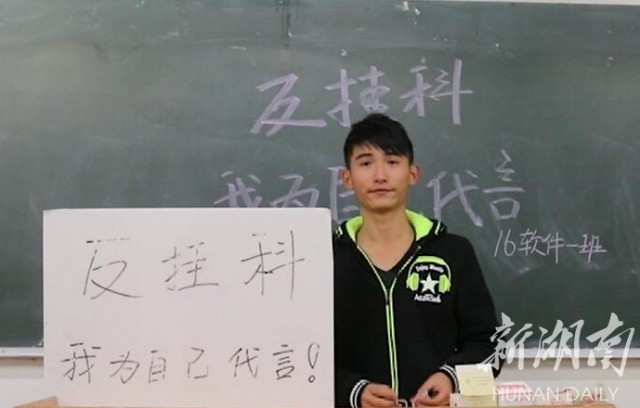 反挂科
我为自己代言
16软件一班
反挂科
我为自己代言!
新湖南
HUNAN DAILY